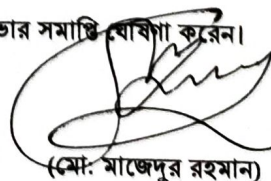 ভার সমাপ্তি ঘোষণা করেন।
(মো: মাজেদুর রহমান)